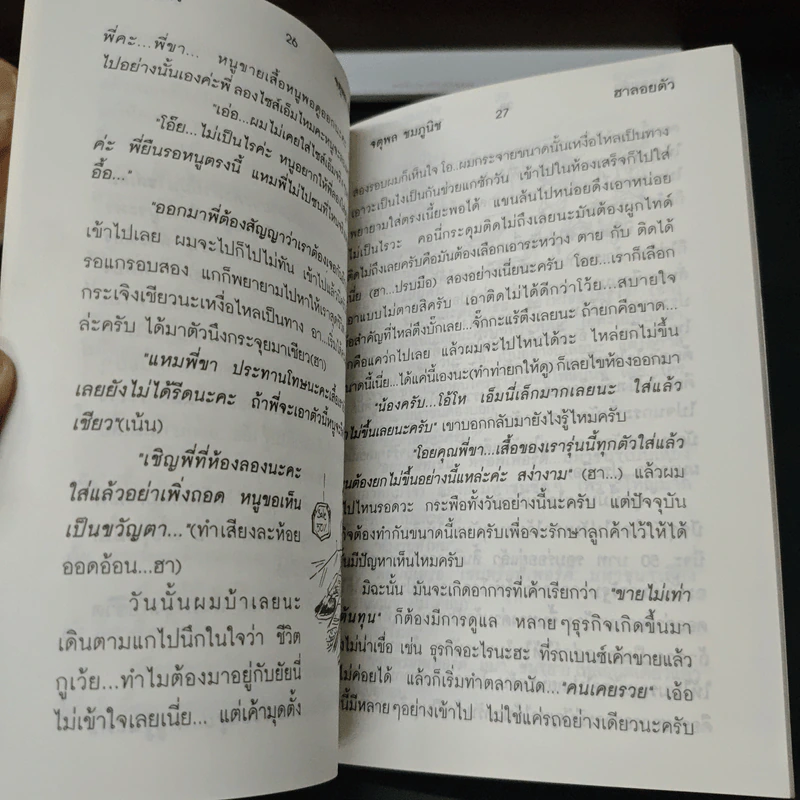 26
พี่คะ...พี่ขา... หนูขายเสื้อหนูพอดูออก
ไปอย่างนั้นเองค่ะพี่ ลองไซส์เอ็มไหมคะ
"เอ่อ...ผมไม่เคยใส่ไซส์เอ็ม
"โอ๊ย...ไม่เป็นไรค่ะ หนูอยากให้พี่
ค่ะ พี่ยืนรอหนูตรงนี้ แหมพี่ไม่ไปชนที่ไหน
อื้อ..."
"ออกมาพี่ต้องสัญญาว่าเราต้องเจอกัน
เข้าไปเลย ผมจะไปก็ไปไม่ทัน เข้าไปแล้ว
รอแกรอบสอง แกก็พยายามไปหาให้เรา
กระเจิงเชียวนะเหงื่อไหลเป็นทาง อา...
ล่ะครับ ได้มาตัวนึงกระจุยมาเชียว(ฮา)
"แหมพี่ขา ประทานโทษนะคะเสื้อ
เลยยังไม่ได้รีดนะคะ ถ้าพี่จะเอาตัวนี้หนู
เชียว"(เน้น)
"เชิญพี่ที่ห้องลองนะคะ
ใส่แล้วอย่าเพิ่งถอด หนูขอเห็น
เป็นขวัญตา..."(ทำเสียงละห้อย
ออดอ้อน...ฮา)
วันนั้นผมบ้าเลยนะ
เดินตามแกไปนึกในใจว่า ชีวิต
กูเว้ย...ทำไมต้องมาอยู่กับยัยนี่
ไม่เข้าใจเลยเนี่ย... แต่เค้ามุดตั้ง
จตุพล ชมภูนิช 27 ฮาลอยตัว
สองรอบผมก็เห็นใจ โอ..ผมกระจายขนาดนั้นเหงื่อไหลเป็นทาง
เอาวะเป็นไงเป็นกันช่วยแกซักวัน เข้าไปในห้องเสร็จก็ไปใส่
พยายามใส่ตรงเนี้ยะพอได้ แขนสั้นไปหน่อยดึงเอาหน่อย
ไม่เป็นไรวะ คอนี่กระดุมติดไม่ถึงเลยนะมันต้องผูกไทด์
ติดไม่ถึงเลยครับคือมันต้องเลือกเอาระหว่าง ตาย กับ ติดได้
เนี่ย (ฮา...ปรบมือ) สองอย่างเนี่ยนะครับ โอย...เราก็เลือก
เอาแบบไม่ตายสิครับ เอาติดไม่ได้ดีกว่าโว้ย...สบายใจ
สำคัญที่ไหล่ตึงบั๊กเลย...จั๊กกะแร้ตึงเลยนะ ถ้ายกก็ขาด...
กคือแค่วกไปเลย แล้วผมจะไปไหนได้วะ ไหล่ยกไม่ขึ้น
ขนาดนี้เนี่ย...ได้แค่นี้เองนะ(ทำท่ายกให้ดู) ก็เลยไขห้องออกมา
"น้องครับ...โอ้โห เอ็มนี่เล็กมากเลยนะ ใส่แล้ว
ไม่ขึ้นเลยนะครับ" เขาบอกกลับมายังไงรู้ไหมครับ
"โอยคุณพี่ขา...เสื้อของเรารุ่นนี้ทุกตัวใส่แล้ว
ต้องยกไม่ขึ้นอย่างนี้แหล่ะค่ะ สง่างาม" (ฮา...) แล้วผม
ไปไหนรอดวะ กระพือทั้งวันอย่างนี้นะครับ แต่ปัจจุบัน
ต้องทำกันขนาดนี้เลยครับเพื่อจะรักษาลูกค้าไว้ให้ได้
มีปัญหาเห็นไหมครับ
มิฉะนั้น มันจะเกิดอาการที่เค้าเรียกว่า "ขายไม่เท่า
ต้นทุน" ก็ต้องมีการดูแล หลายๆธุรกิจเกิดขึ้นมา
ไม่น่าเชื่อ เช่น ธุรกิจอะไรนะฮะ ที่รถเบนซ์เค้าขายแล้ว
ไม่ค่อยได้ แล้วก็เริ่มทำตลาดนัด..."คนเคยรวย" เอ้อ
นี้มีหลายๆอย่างเข้าไป ไม่ใช่แค่รถอย่างเดียวนะครับ